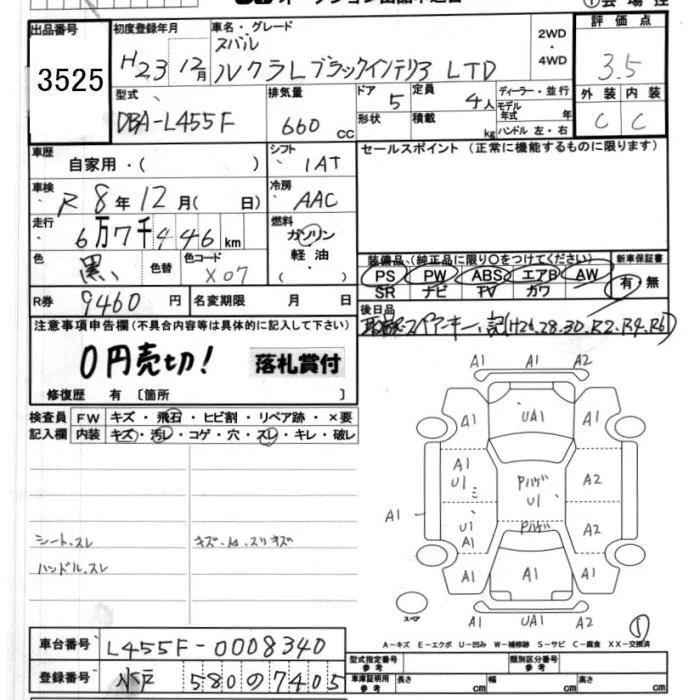 出品番号 初度登録年月 車名・グレード 2WD・4WD 評価点
3525 H23 12月 スバル 3.5
ルクラLブラックインテリア LTD
型式 排気量 ドア 定員 ディーラー・並行 外装 内装
DBA-L455F 660 CC 5 4人 モデル年式 年 C C
形状 積載 kg ハンドル 左・右
車歴 自家用・( ) シフト IAT セールスポイント (正常に機能するものに限ります)
車検 R8年12月( 日) 冷房 AAC
走行 6万7千446km 燃料 ガソリン
色 黒 色替 色コード X07 軽油・( )
装備品 (純正品に限り○をつけてください) 新車保証書
PS PW ABS エアB AW 有・無
SR ナビ TV カワ
R券 9460円 名変期限 月 日
後日品
スペアーキー、記(H26.28.30.R2.R4.R6)
注意事項申告欄 (不具合内容等は具体的に記入して下さい)
0円売切! 落札賞付
修復歴 有 [箇所 ]
検査員 FW キズ・飛石・ヒビ割・リペア跡・×要
記入欄 内装 キズ・汚レ・コゲ・穴・スレ・キレ・破レ
シート、スレ
ハンドル、スレ
A1 A1
A1 UA1 A2
A1 U1 Pハゲ U1 A2
A1 U1 A1 Pハゲ A2
A1 A1 A1
A1 UA1 A1
スペア
A-キズ E-エクボ U-凹み W-補修跡 S-サビ C-腐食 XX-交換済
車台番号 L455F-0008340
型式指定番号 参考 類別区分番号 参考
登録番号 水戸 580 の 7405
車庫証明用 参考 長さ cm 幅 cm 高さ cm